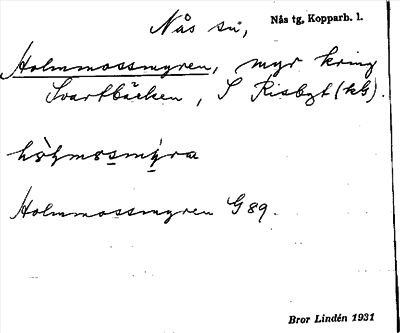 Nås sn, Nås tg, Kopparb. l.
Holmmossmyren, myr kring
Svartbäcken, S Risbgt (kG).
Holmmossmyren G 89.
Bror Lindén 1931